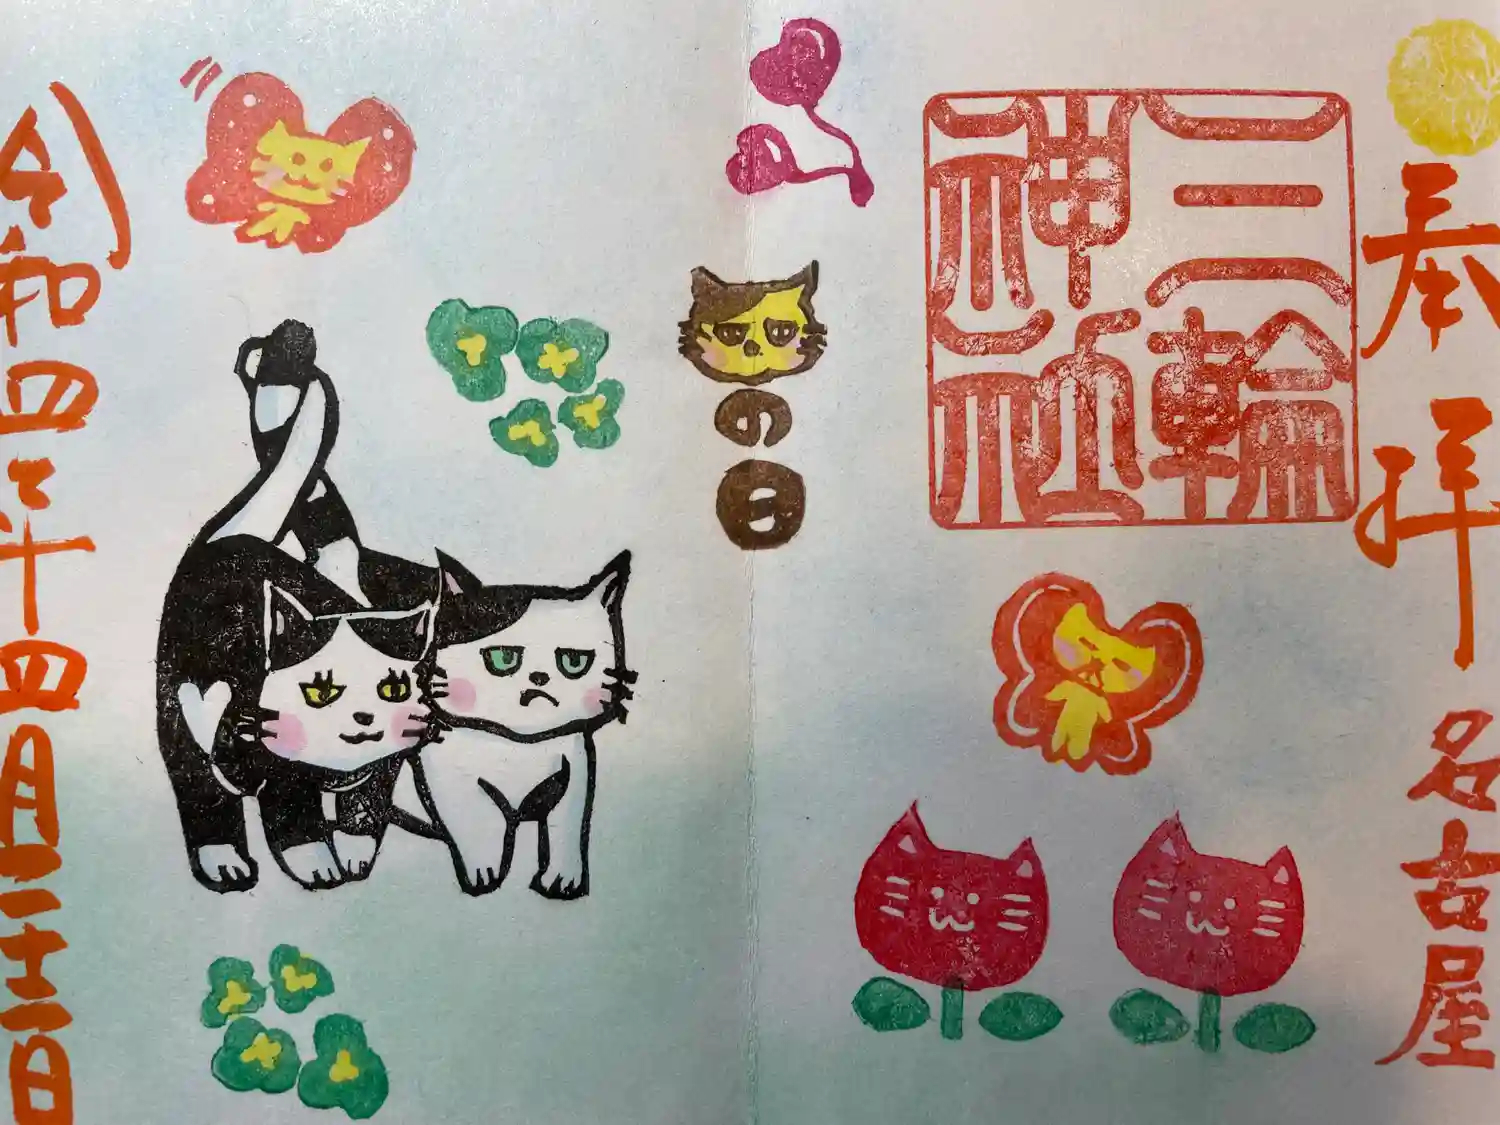 奉拝 名古屋
三輪
神社
の日
令和四年四月二十二日